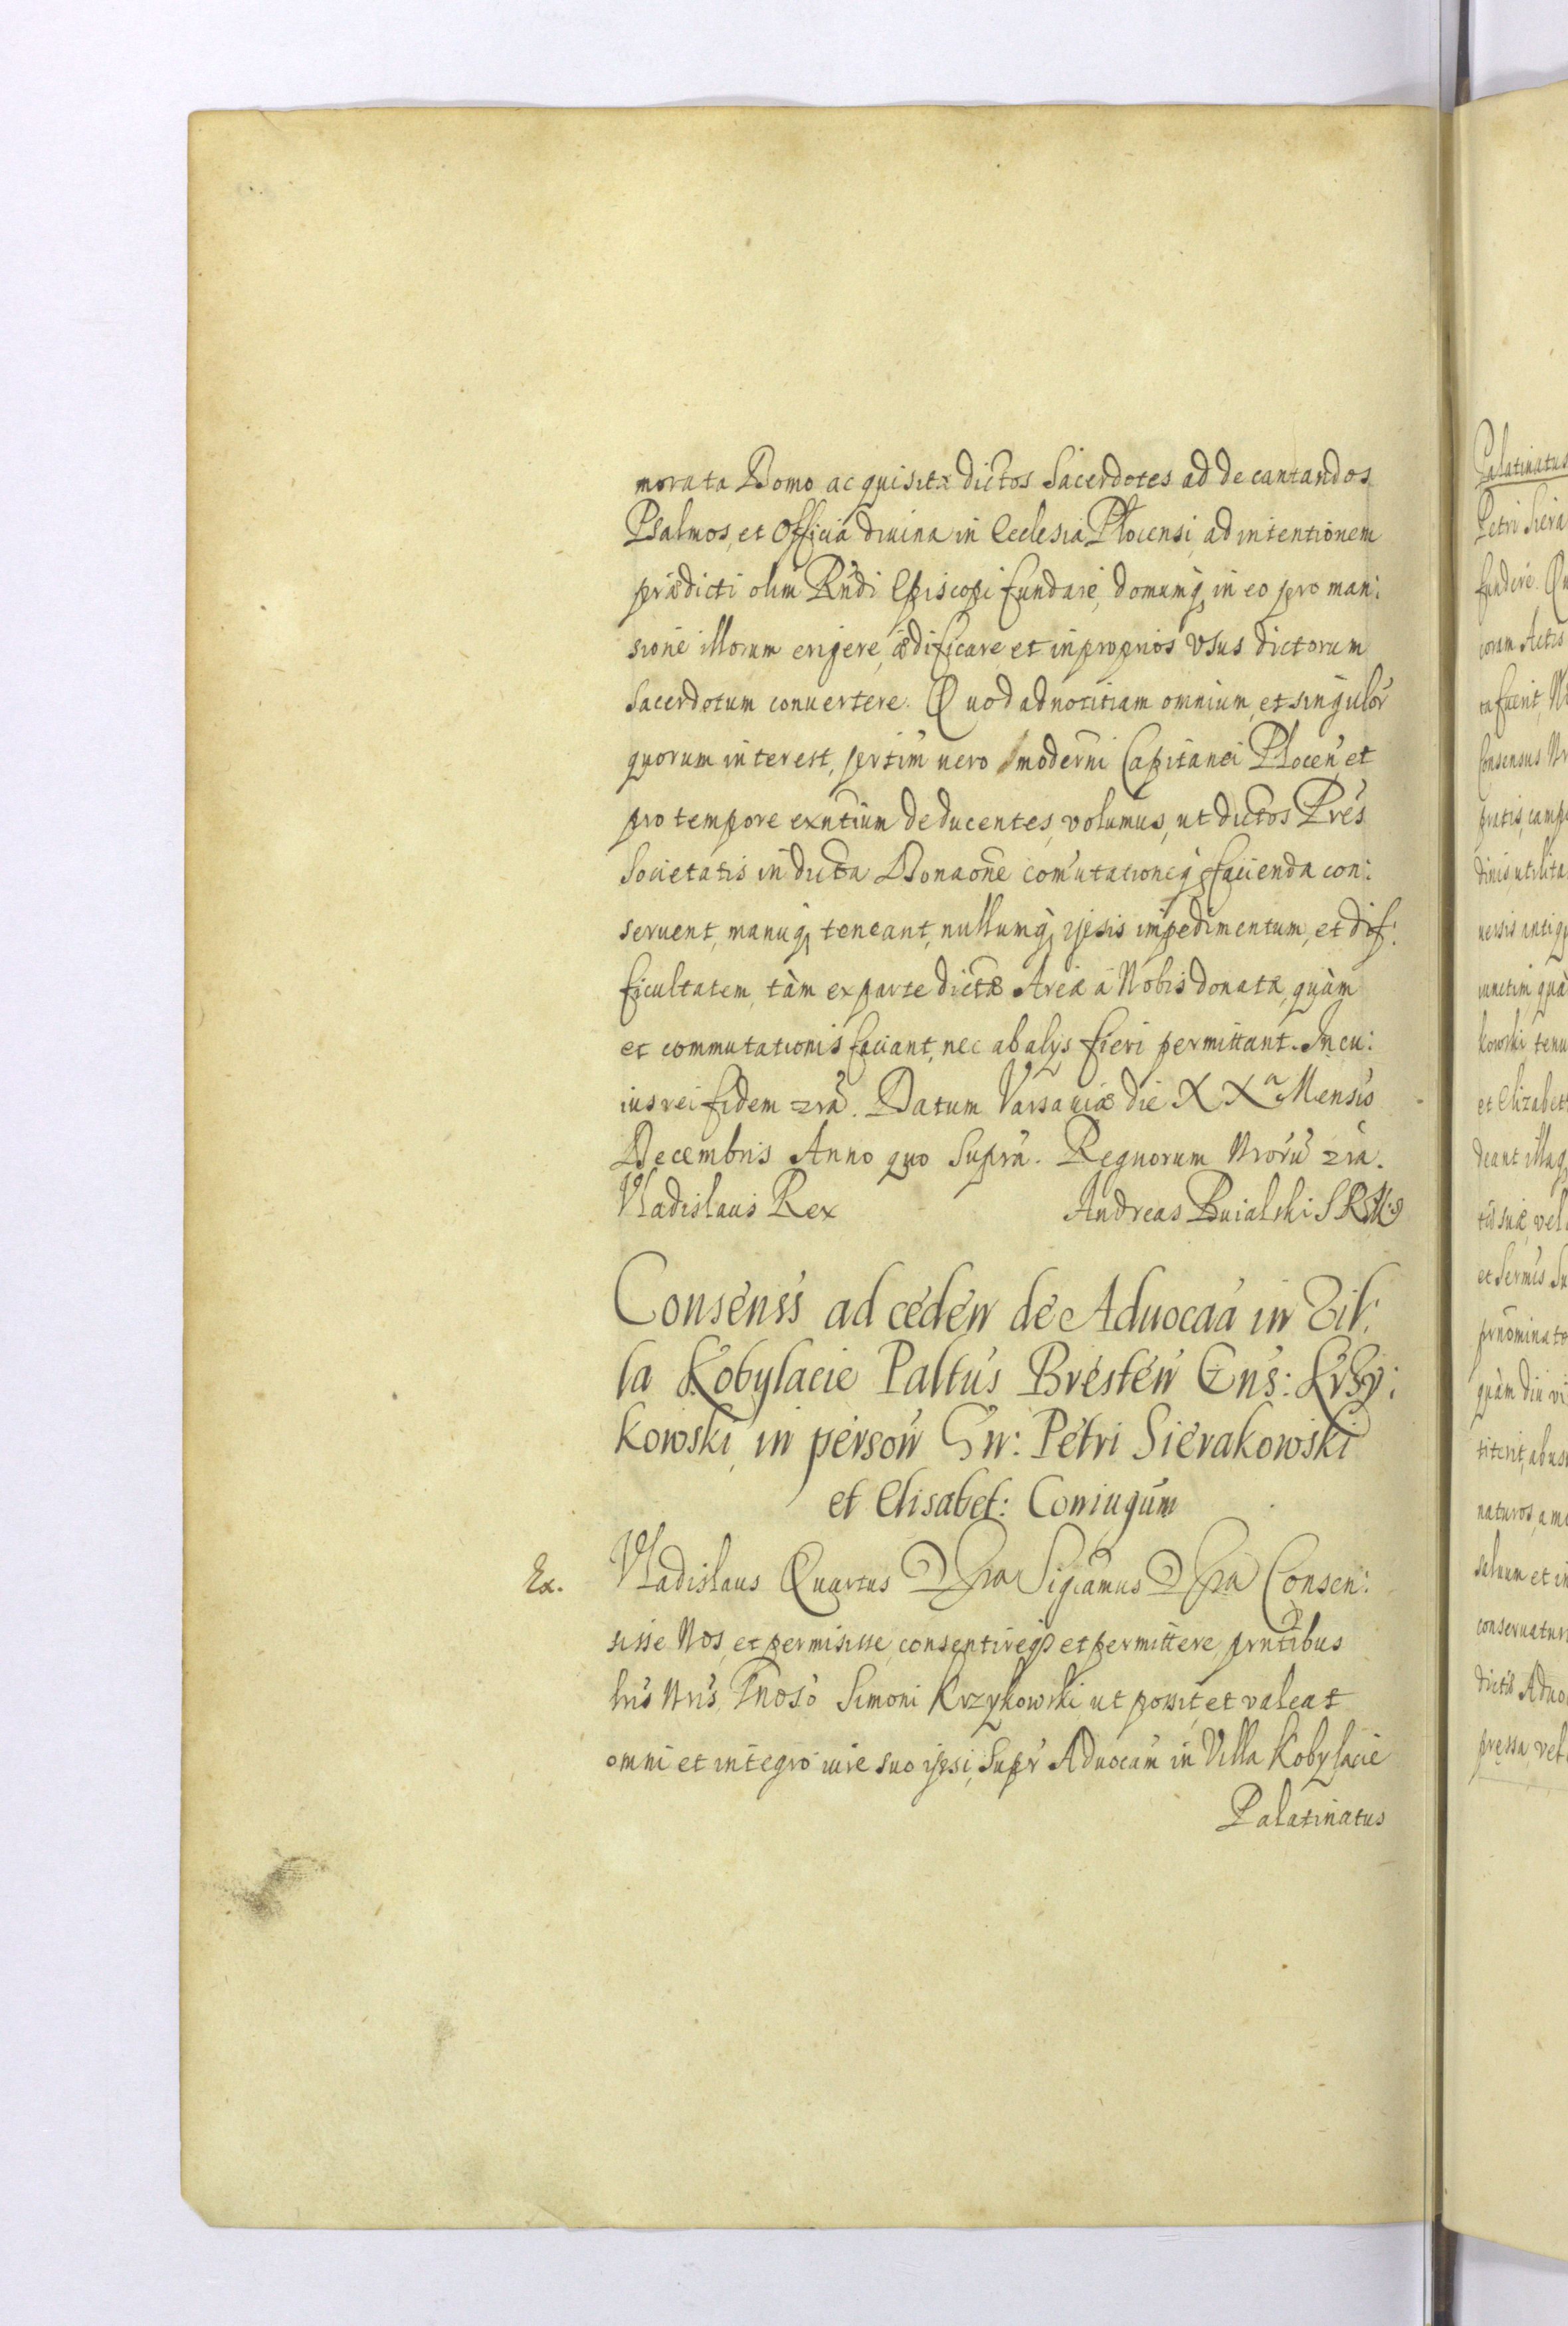 morata Domo acquisita dictos Sacerdotes ad decantandos
Psalmos, et Officia diuina in Ecclesia Plocensi, ad intentionem
prædicti olim Rndi Episcopi fundare, domumq in eo pro man:
sione illorum erigere, ædificare et in proprios Vsus dictorum
Sacerdotum conuertere. Quod ad notitiam omnium, et singulor
quorum interest, prtim uero moderni Capitanei Plocen et
pro tempore exntium deducentes, volumus, ut dictos Pres
Societatis in dicta Donaone comutationeq facienda con:
seruent, manuq teneant, nullumq ipsis impedimentum, et dif:
ficultatem, tàm ex parte dictæ Areæ à Nobis donatæ, quàm
et commutationis faciant, nec ab alys fieri permittant. In cu:
ius rei fidem etra. Datum Varsauiæ die XXa Mensis
Decembris Anno quo Supra. Regnorum Nroru etra.
Vladislaus Rex Andreas Buialski SRM
Consenss ad ceden de Aduocaa in Vil:
la Kobylacie Paltus Bresten Gns: Krzy:
kowski, in person Gn: Petri Sierakowski
et Elisabet: Coniugum
Ex. Vladislaus Quartus Sigcamus Consen:
sisse Nos, et permisisse, consentireq et permittere, prntibus
lris Nris, Gnoso Simoni Krzykowski, ut possit et valeat
omni et integro iure suo ipsi, supr Aduocam in Villa Kobylacie
Palatinatus
Palatinatus
Petri Siera
fundere. Qu
coram Actis
ta fuerit, N
Consensus Nr
pratis, camp
dinis, utilita
uersis antiq
iunctim quà
kowski tenu
et Elizabet
deant illaq
tis suæ, vel
et Sermis Su
prnominato
quàm diu vi
titerit, ab us
naturos, amo
saluum et in
conseruatur
dictis Aduo
pressa, vel